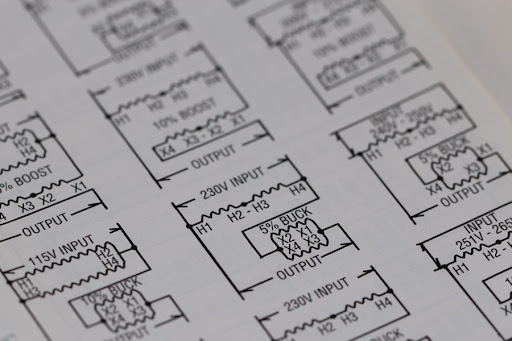 OUTPUT
230V INPUT
H1 H2 H3 H4
10% BOOST
X4 X3 - X2 X1
OUTPUT
H1
10% BOOST
X4 X3 X2 X1
OUTPUT
INPUT
240V - 250V
H1 H2 - H3 H4
5% BUCK
X2 X1
X4 X3
OUTPUT
H2
H4
% BOOST
X4 X3 X2 X1
OUTPUT
230V INPUT
H1 H2 - H3 H4
5% BUCK
X2 X1
X4 X3
OUTPUT
INPUT
251V - 265
H1 H2 -
115V INPUT
H1 H2
H3 H4
10% BUCK
X2 X1
X4 X3
OUTPUT
230V INPUT
H1 H2 H3 H4
BUCK